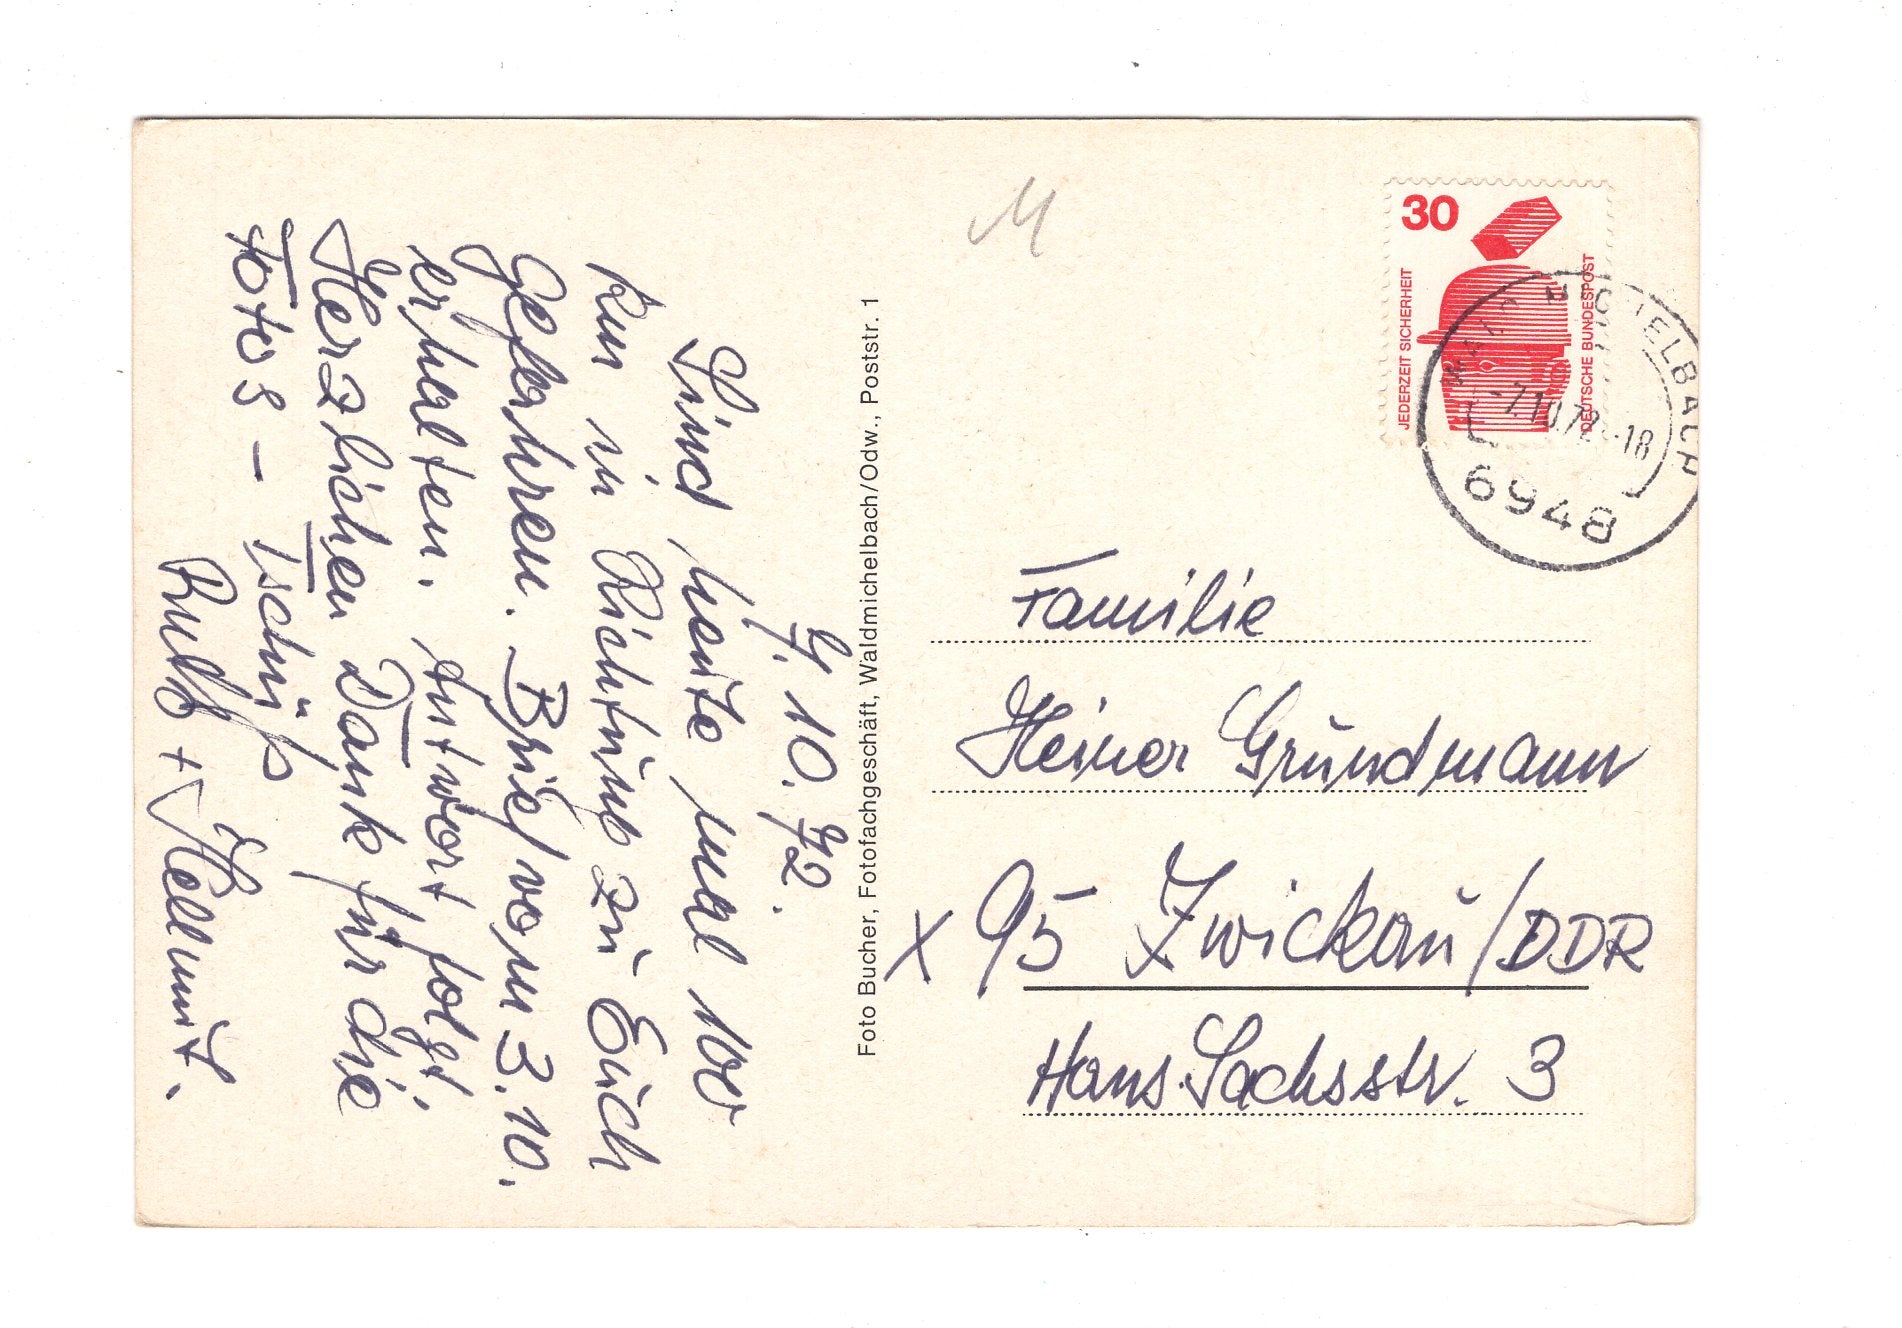 7.10.72.
Sind heute mal 100
km in Richtung zu Euch
gefahren. Brief vom 3.10.
erhalten. Antwort folgt.
Herzlichen Dank für die
Fotos – Tschüß
Ruth + Hellmut.
Foto Bucher, Fotofachgeschäft, Waldmichelbach/Odw., Poststr. 1
M
30
JEDERZEIT SICHERHEIT
DEUTSCHE BUNDESPOST
WALD-MICHELBACH
-7.10.72-18
6948
Familie
Heiner Grundmann
X 95 Zwickau/DDR
Hans-Sachsstr. 3